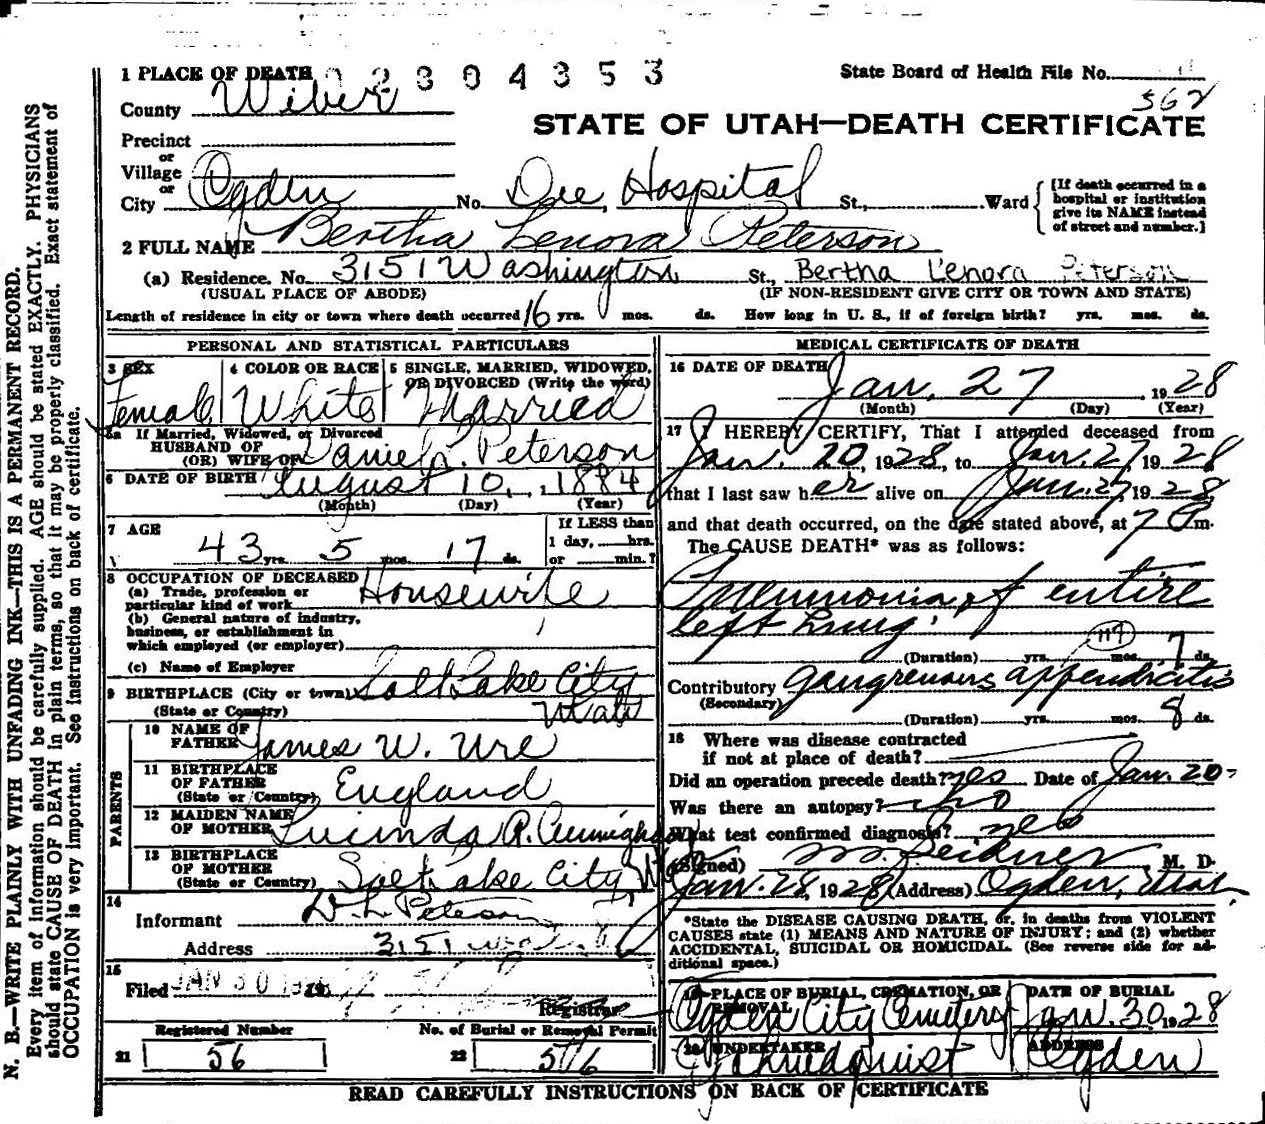 1 PLACE OF DEATH 02304353
State Board of Health File No.
County Weber
362
STATE OF UTAH—DEATH CERTIFICATE
Precinct
or
Village
or
City Ogden No. Dee Hospital St., Ward
[If death occurred in a hospital or institution give its NAME instead of street and number.]
2 FULL NAME Bertha Lenora Peterson
(a) Residence. No. 3151 Washington St., Bertha L'enora Peterson
(USUAL PLACE OF ABODE) (IF NON-RESIDENT GIVE CITY OR TOWN AND STATE)
Length of residence in city or town where death occurred 16 yrs. mos. ds. How long in U. S., if of foreign birth? yrs. mos. ds.
PERSONAL AND STATISTICAL PARTICULARS
3 SEX
Female
4 COLOR OR RACE
White
5 SINGLE, MARRIED, WIDOWED, OR DIVORCED (Write the word)
Married
5a If Married, Widowed, or Divorced
HUSBAND OF
(OR) WIFE OF Daniel L. Peterson
6 DATE OF BIRTH August 10, 1884
(Month) (Day) (Year)
7 AGE
43 yrs. 5 mos. 17 ds.
If LESS than
1 day, hrs.
or min.?
8 OCCUPATION OF DECEASED
(a) Trade, profession or
particular kind of work Housewife
(b) General nature of industry,
business, or establishment in
which employed (or employer)
(c) Name of Employer
9 BIRTHPLACE (City or town) Salt Lake City
(State or Country) Utah
PARENTS
10 NAME OF
FATHER James W. Ure
11 BIRTHPLACE
OF FATHER
(State or Country) England
12 MAIDEN NAME
OF MOTHER Lucinda A. Cunningham
13 BIRTHPLACE
OF MOTHER
(State or Country) Salt Lake City Utah
14
Informant D. L. Peterson
Address 3151 Wash.
15
Filed JAN 30 19
Registrar
Registered Number
21 56
No. of Burial or Removal Permit
22 576
MEDICAL CERTIFICATE OF DEATH
16 DATE OF DEATH
Jan. 27 1928
(Month) (Day) (Year)
17 I HEREBY CERTIFY, That I attended deceased from
Jan. 20, 1928, to Jan. 27, 1928
that I last saw her alive on Jan. 27, 1928
and that death occurred, on the date stated above, at 7 P m.
The CAUSE DEATH* was as follows:
Pneumonia of entire
left Lung.
119
(Duration) yrs. mos. 7 ds.
Contributory gangrenous appendicitis
(Secondary)
(Duration) yrs. mos. 8 ds.
18 Where was disease contracted
if not at place of death?
Did an operation precede death? Yes Date of Jan. 20-
Was there an autopsy? No
What test confirmed diagnosis? yes
(Signed) M. D.
Jan. 28, 1928 (Address) Ogden, Utah.
*State the DISEASE CAUSING DEATH, or, in deaths from VIOLENT
CAUSES state (1) MEANS AND NATURE OF INJURY; and (2) whether
ACCIDENTAL, SUICIDAL OR HOMICIDAL. (See reverse side for ad-
ditional space.)
19 PLACE OF BURIAL, CREMATION, OR
REMOVAL
Ogden City Cemetery
DATE OF BURIAL
Jan. 30, 1928
20 UNDERTAKER
Kindquist
ADDRESS
Ogden
READ CAREFULLY INSTRUCTIONS ON BACK OF CERTIFICATE
N. B.—WRITE PLAINLY WITH UNFADING INK—THIS IS A PERMANENT RECORD.
Every item of information should be carefully supplied. AGE should be stated EXACTLY. PHYSICIANS
should state CAUSE OF DEATH in plain terms, so that it may be properly classified. Exact statement of
OCCUPATION is very important. See instructions on back of certificate.